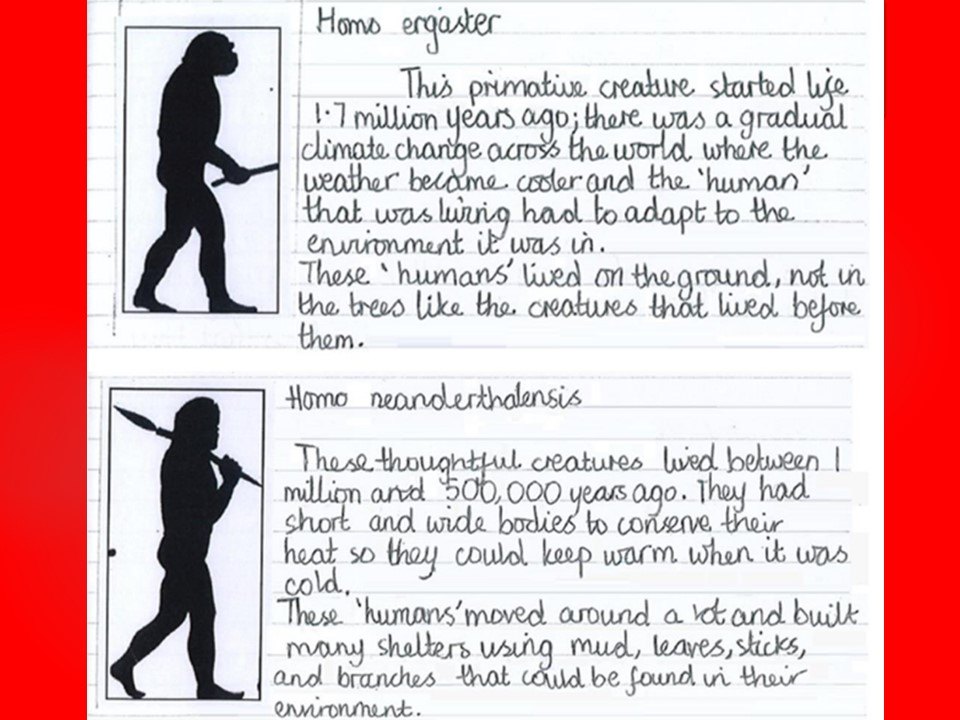 Homo ergaster
This primative creature started life
1.7 million years ago; there was a gradual
climate change across the world where the
weather became cooler and the 'human'
that was living had to adapt to the
environment it was in.
These 'humans' lived on the ground, not in
the trees like the creatures that lived before
them.
Homo neanderthalensis
These thoughtful creatures lived between 1
million and 500,000 years ago. They had
short and wide bodies to conserve their
heat so they could keep warm when it was
cold.
These 'humans' moved around a lot and built
many shelters using mud, leaves, sticks,
and branches that could be found in their
environment.